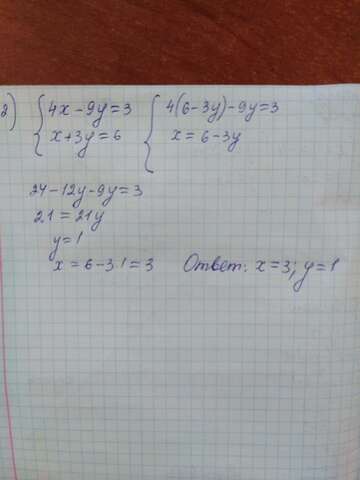 2) { 4x-9y=3 { 4(6-3y)-9y=3
x+3y=6 x=6-3y
24-12y-9y=3
21=21y
y=1
x=6-3·1=3 Ответ: x=3; y=1